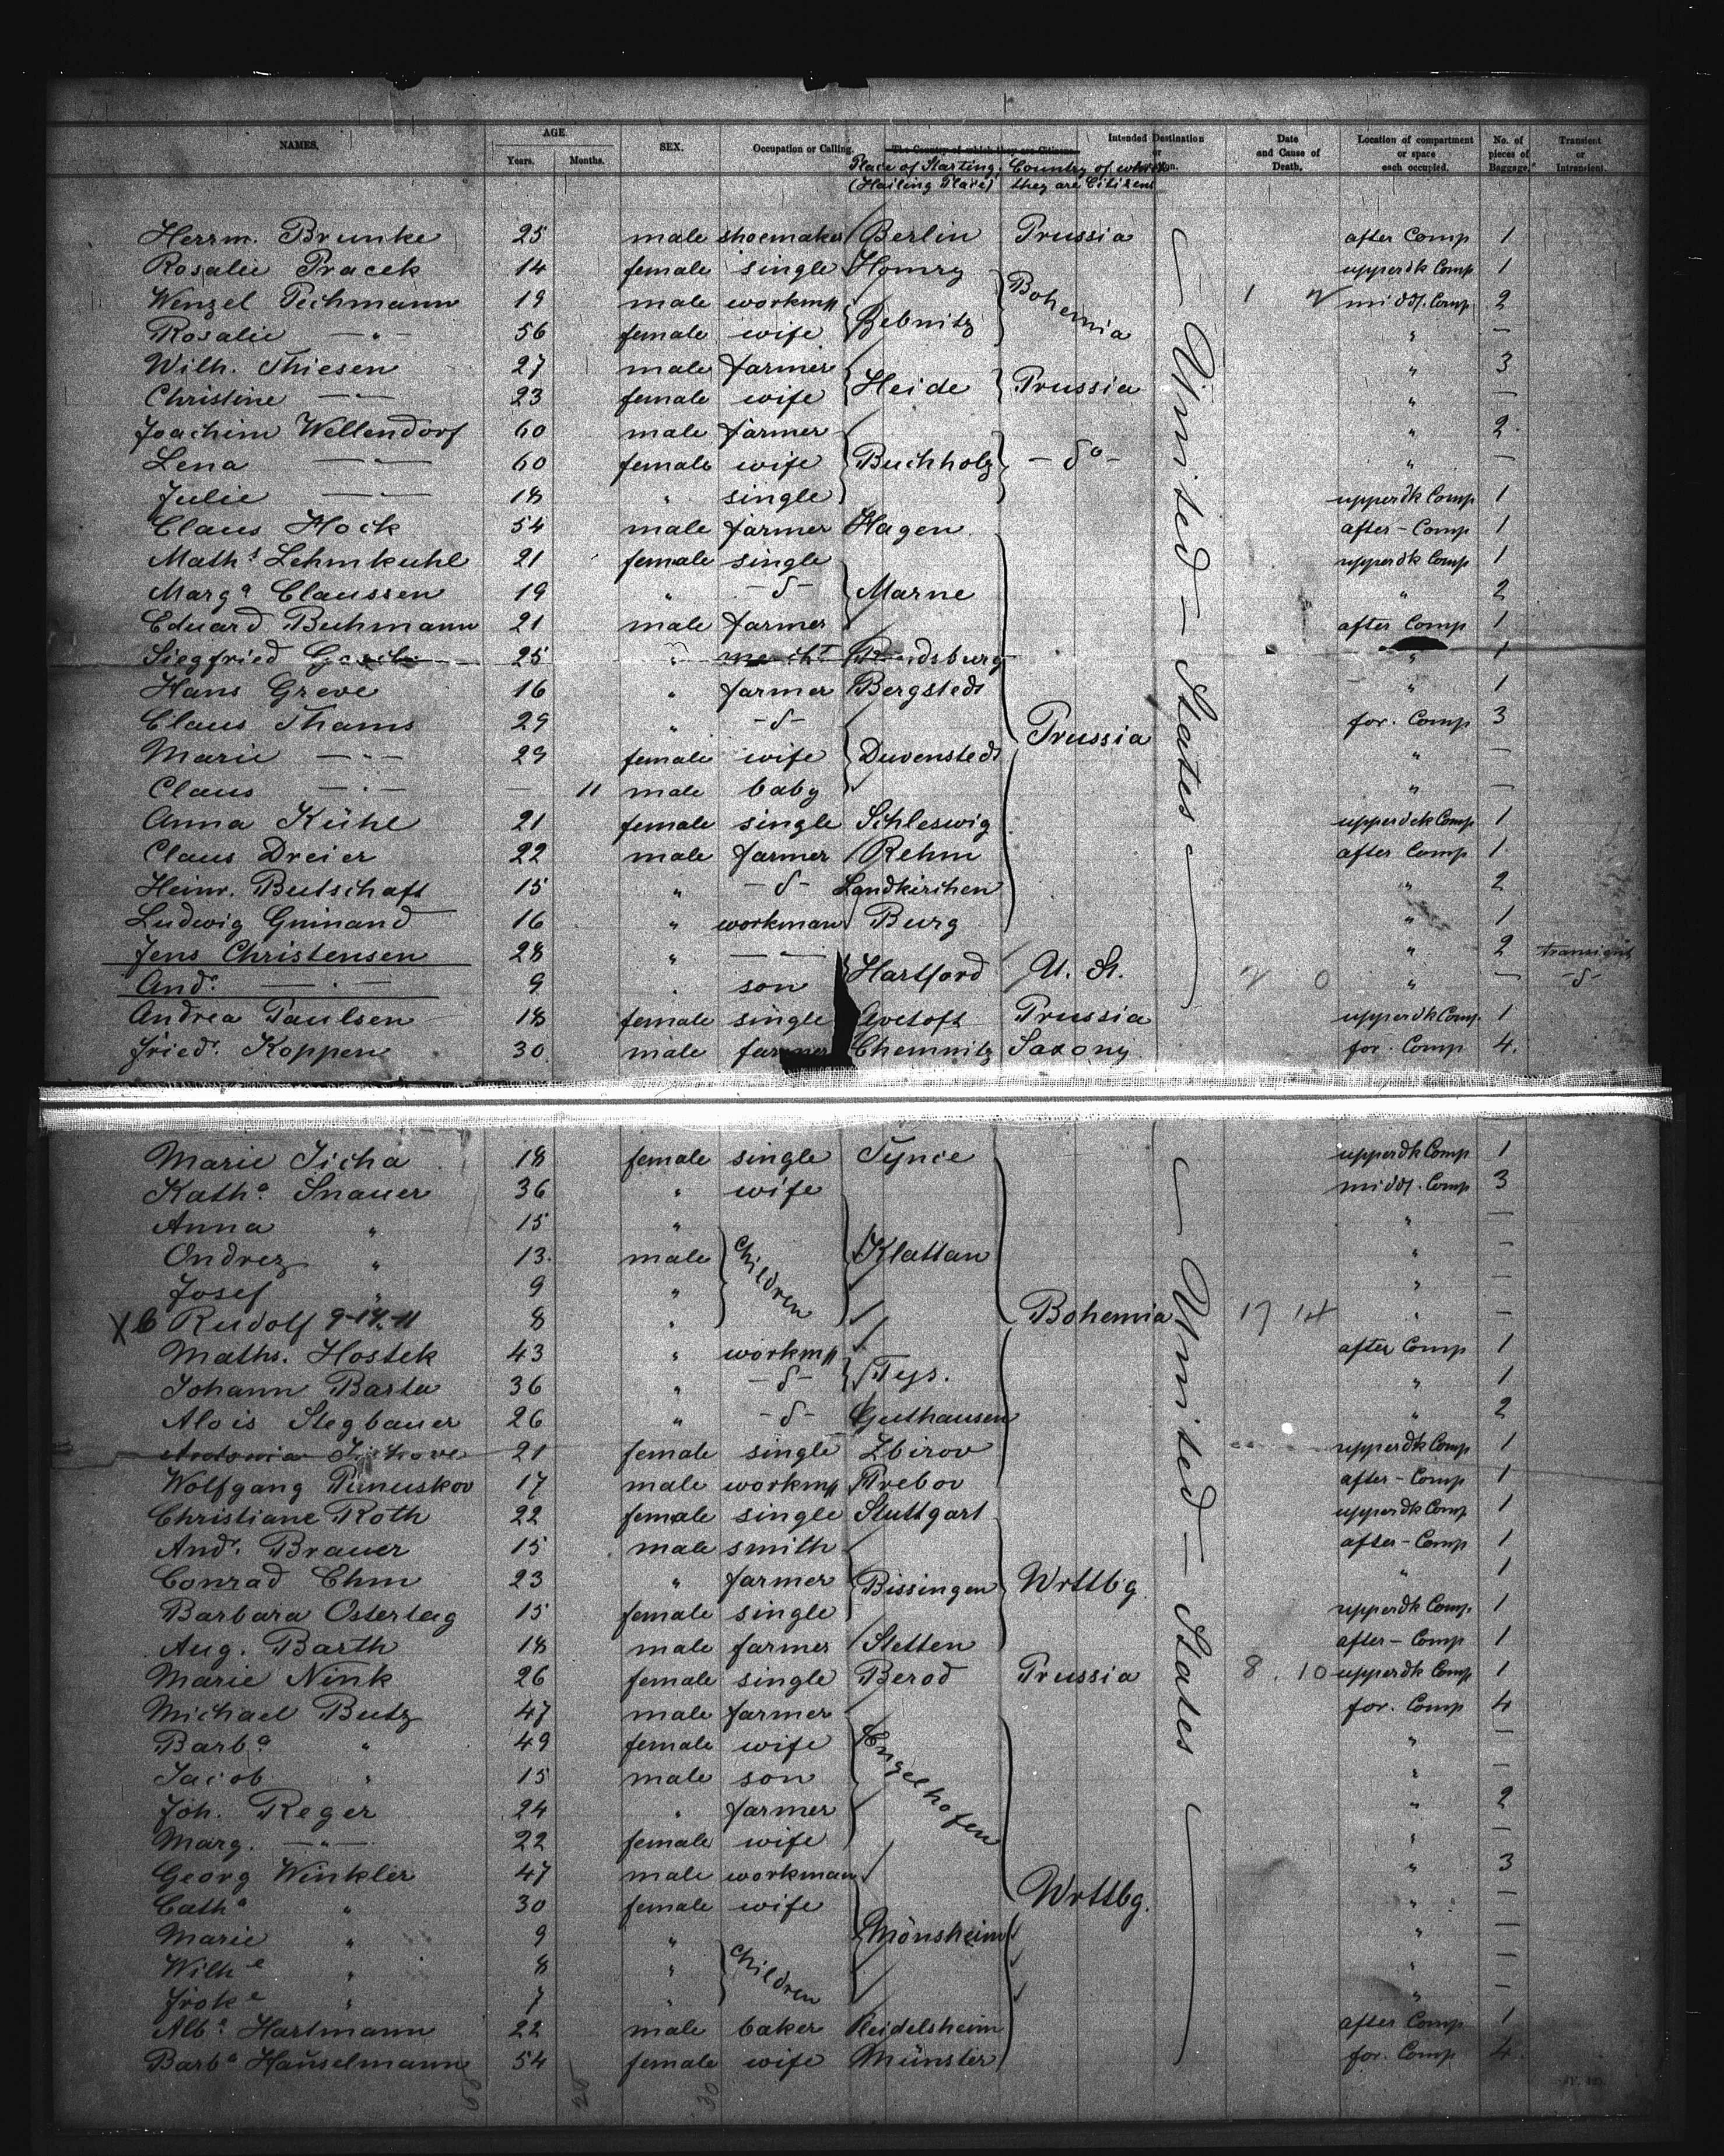 NAMES. AGE. SEX. Occupation or Calling. The Country of which they are Citizens. Intended Destination or Date and Cause of Death. Location of compartment or space each occupied. No. of pieces of Baggage. Transient or Intransient.
Years. Months. Place of Starting. (Hailing Place) Country of which they are Citizens
Herrm. Brunke 25 male shoemaker Berlin Prussia after Comp 1
Rosalie Pracek 14 female single Homry upperdk Comp 1
Wenzel Pechmann 19 male workmn middl. Comp 2
Bohemia
Rosalie — " — 56 female wife Bebnitz " —
Wilh. Thiesen 27 male farmer " 3
Christine — " — 23 female wife Heide Prussia " —
Joachim Wellendorf 60 male farmer " 2
Lena — " — 60 female wife Buchholz — do — " —
Julie — " — 18 " single upperdk Comp 1
Claus Hock 54 male farmer Hagen after-Comp 1
Maths Lehmkuhl 21 female single upperdk Comp 1
Marga Claussen 19 " — d — Marne " 2
Eduard Buhmann 21 male farmer after Comp 1
Siegfried 25 " mercht Rendsburg " 1
Hans Greve 16 " farmer Bergstedt " 1
Claus Thams 29 " — d — for. Comp 3
Prussia
Marie — " — 29 female wife Duvenstedt " —
Claus — " — — 11 male baby " —
Anna Kühl 21 female single Schleswig upperdek Comp 1
Claus Dreier 22 male farmer Rehm after Comp 1
Heinr. Butschaft 15 " — d — Landkirchen " 2
Ludwig Guinand 16 " workman Burg " 1
Jens Christensen 28 " — — " 2 transient
Andr. — " — 9 " son Hartford U. St. " — — d —
Andrea Paulsen 18 female single Avetoft Prussia upperdk Comp. 1
Friedr. Koppen 30 male farmer Chemnitz Saxony for. Comp 4.
— United — States —
Marie Jicha 18 female single Tynce upperdk Comp 1
Katha Snauer 36 " wife middl. Comp 3
Anna " 15 " " —
Ondrez " 13. male Children Klattan " —
Josef " 9 " " —
X 6 Rudolf 9-14-11 8 " Bohemia 17 14 " —
Maths. Hostek 43 " workmn after Comp 1
Johann Barta 36 " — d — Tys. " 1
Alois Stegbauer 26 " — d — Guthausen " 2
Antonia 21 female single Zbirov upperdk Comp 1
Wolfgang Punuskov 17 male workmn Trebov after-Comp 1
Christiane Roth 22 female single Stuttgart upperdk Comp 1
Andr. Brauer 15 male smith after-Comp 1
Conrad Ehm 23 " farmer Bissingen Wrttbg " 1
Barbara Ostertag 15 female single upperdk Comp. 1
Aug. Barth 18 male farmer Stetten after-Comp 1
Marie Nink 26 female single Berod Prussia 8. 10 upperdk Comp 1
Michael Butz 47 male farmer for. Comp 4
Barba " 49 female wife " —
Jacob " 15 male son " —
Engelhofen
Joh. Reger 24 " farmer " 2
Marg. — " — 22 female wife " —
Georg Winkler 47 male workman " 3
Catha " 30 female wife Wrttbg. " —
Marie " 9 " Mönsheim " —
Wilhe " 8 " Children " —
Froke " 7 " " —
Alb. Hartmann 22 male baker Pleidelsheim after Comp 1
Barba Hauselmann 54 female wife Münster for. Comp 4.
— United — States —